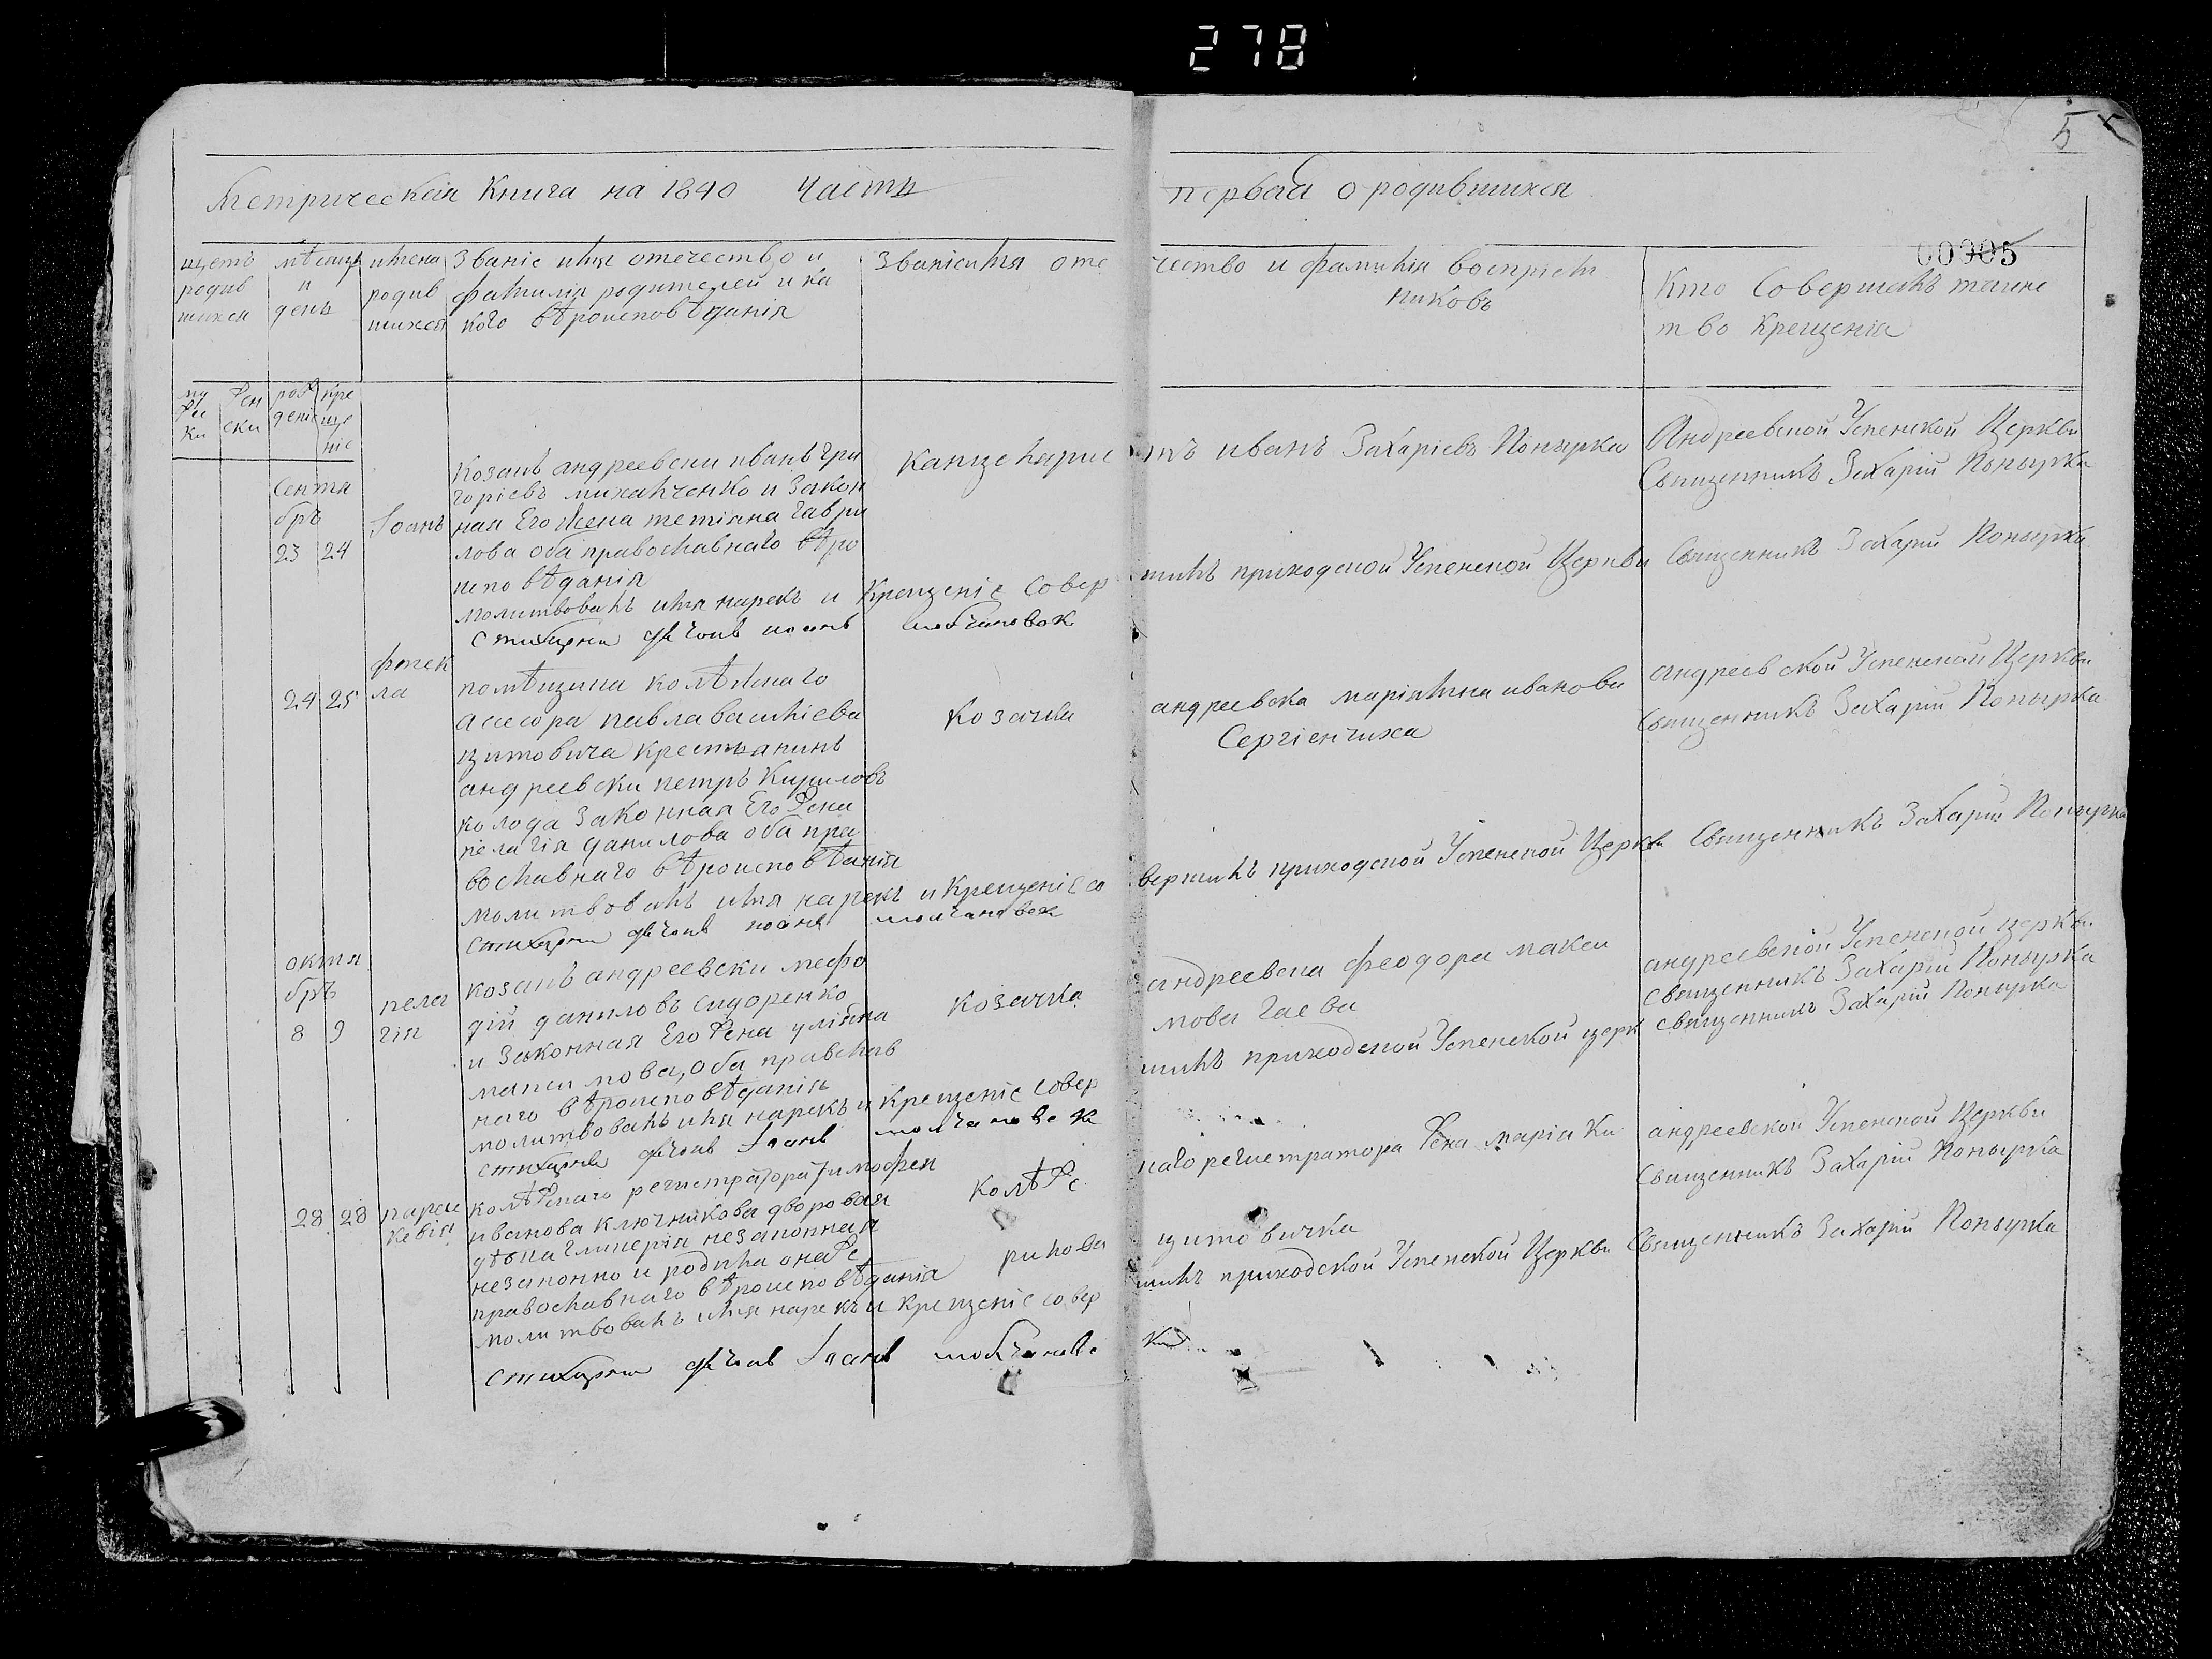 278
5
Метрическая Книга на 1840 Часть первая о родившихся
00005
щетъ родив шихся
мѣсяц и день
имена родив шихся
Званіе имя отечество и
фамилія родителей и ка
кого вѣроисповѣданія
Званіе имя оте чество и фамилія воспріем
никовъ
Кто Совершалъ таинс
тво Крещенія
му жес ки
жен ски
рож деніе
кре ще ніе
Сентя
бръ
23 24
Іоанъ
Козакъ андреевски иванъ гри
горіевъ михалченко и Закон
ная Его жена тетіяна гаври
лова оба православнаго вѣро
исповѣданія
Канцелярис тъ иванъ Захаріевъ Попырка
Андреевской Успенской Церкви
Священникъ Захарій Попырка
молитвовалъ имя нарекъ и Крещеніе Совер шилъ приходской Успенской Церкви Священникъ Захарій Попырка
Стихарни дячокъ иоанъ
24 25
фтек
ла
помѣщика колѣжнаго
асесора павла василіева
цитовича крестьянинъ
андреевски петръ Кириловъ
колода Законная Его жена
пелагія данилова оба пра
вославнаго вѣроисповѣданія
Козачка андреевска маріянна иванова
Сергіенчиха
андреевской Успенской Церкви
Священникъ Захарій Попырка
молитвовалъ имя нарекъ и Крещеніе со вершилъ приходской Успенской Церкви Священникъ Захарій Попырка
Стихарни дячокъ иоанъ
октя
бръ
8 9
пела
гія
козакъ андреевски мефо
дій даниловъ сидоренко
и Законная Его жена уліяна
максимова, оба православ
наго вѣроисповѣданія
козачка андреевска феодора макси
мова гаева
андреевской Успенской церкви
священникъ Захарій Попырка
молитвовалъ имя нарекъ и Крещеніе совер шилъ приходской Успенской церк священникъ Захарій Попырка
Стихарни дячокъ Іоанъ
28 28
парас
кевія
колѣжнаго регистратора тимофея
иванова ключникова дворовая
дѣвка гликерія незаконная
незаконно и родила онаже
православнаго вѣроисповѣданія
колѣжс наго регистратора жена марія Ки
рилова цитовичка
андреевской Успенской Церкви
Священникъ Захарій Попырка
молитвовалъ имя нарекъ и крещеніе совер шилъ приходской Успенской Церкви Священникъ Захарій Попырка
Стихарни дячокъ Іоанъ